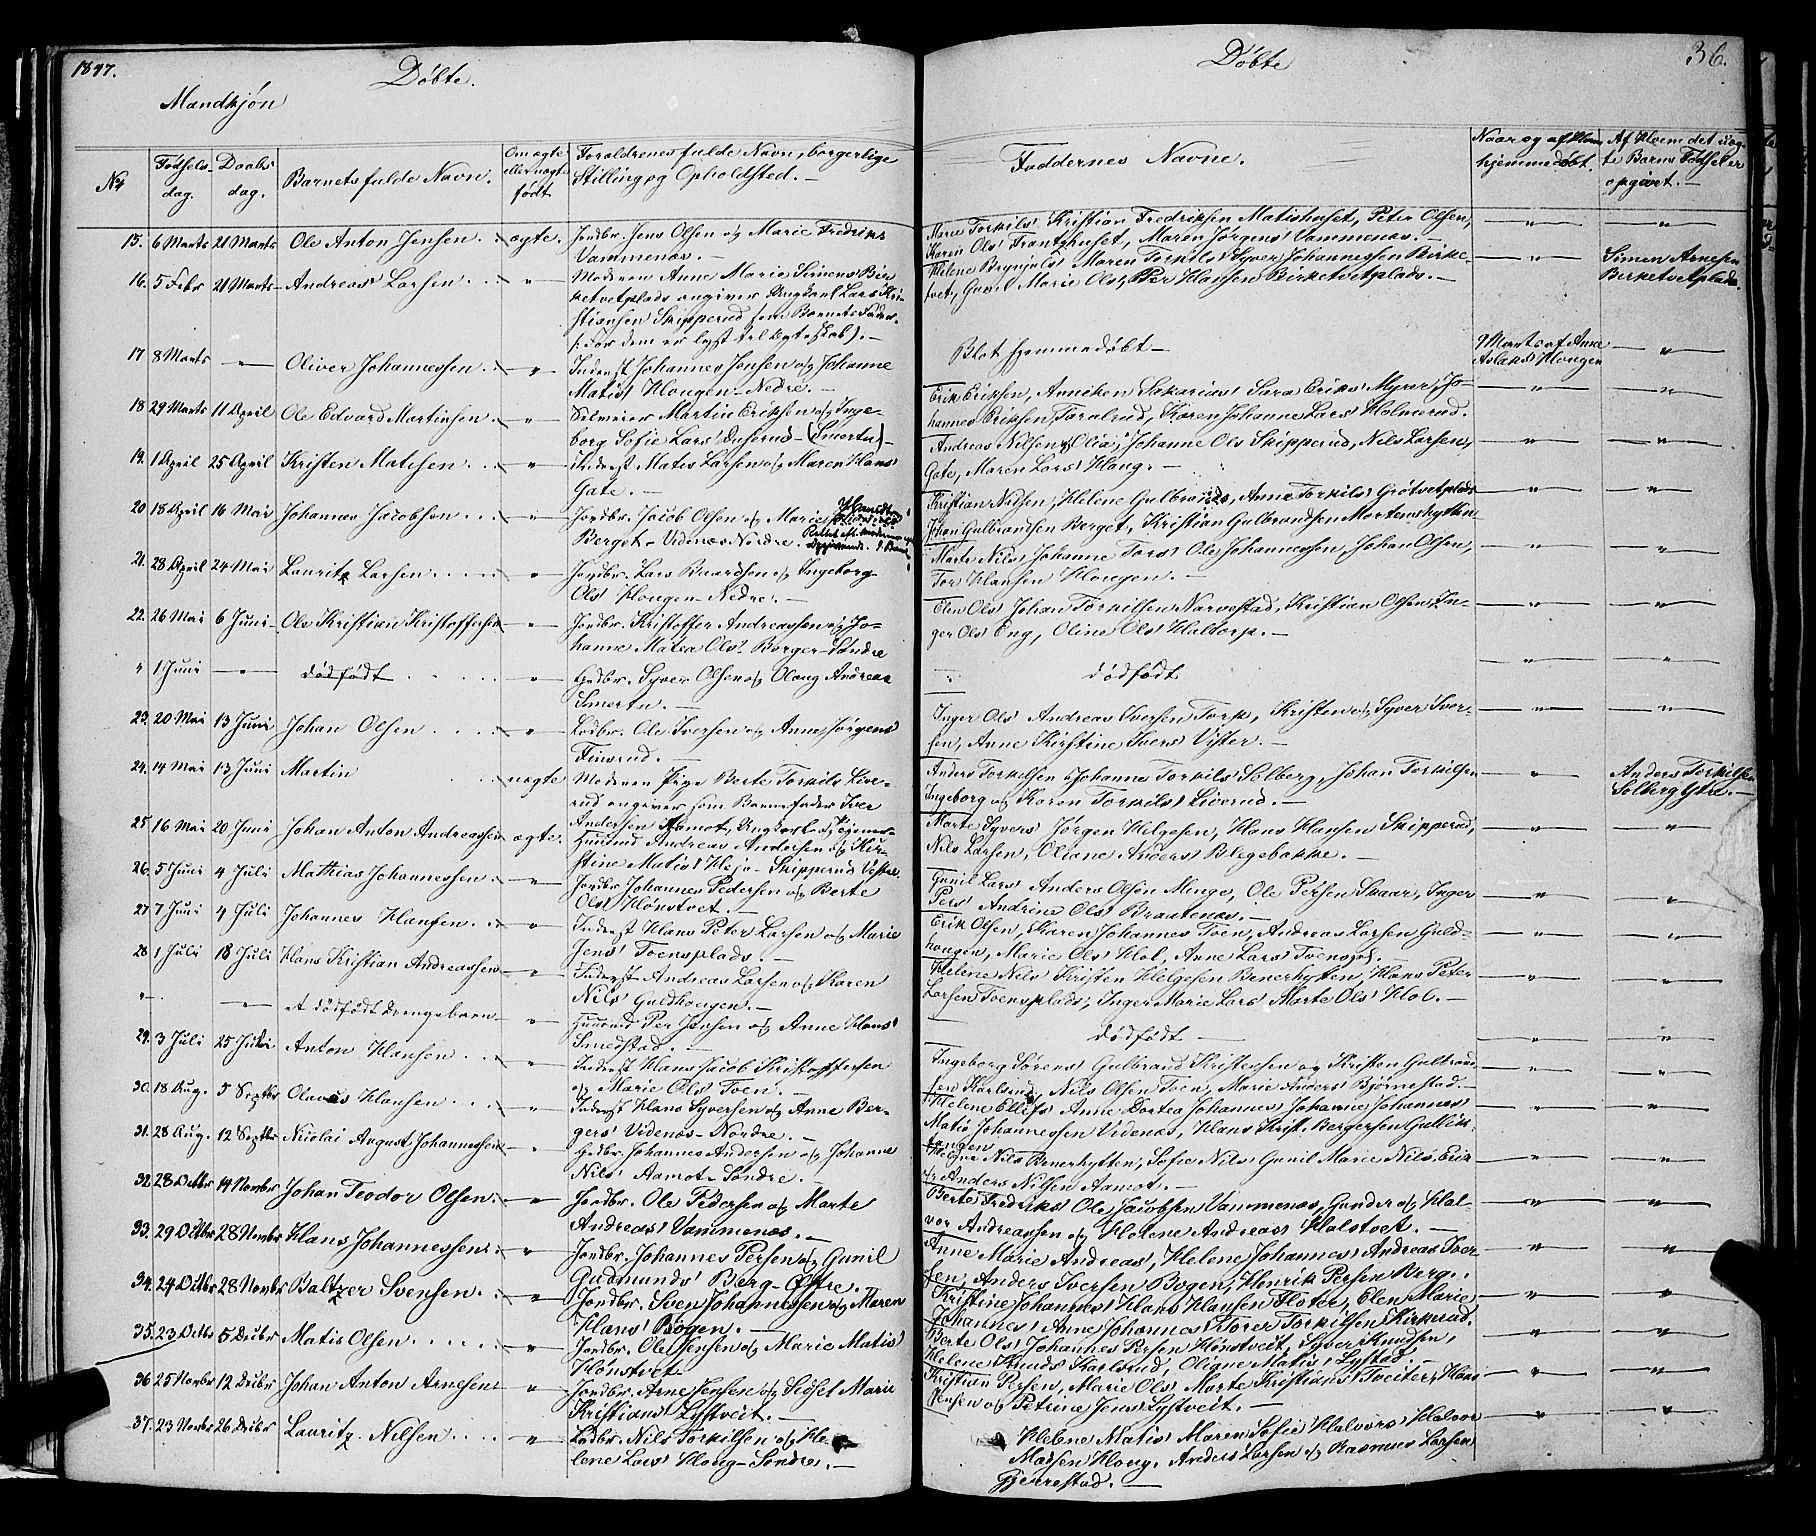 1847.
Døbte.
Mandkjøn
No
Fødsels dag.
Daabs dag.
Barnets fulde Navn.
Om ægte eller uægte født
Forældrenes fulde Navn, borgerlige Stilling og Opholdsted. —
15. 6 Marts 21 Marts Ole Anton Jensen. ægte. Jordbr. Jens Olsen og Marie Fredriks
Vammenæs. —
16. 5 Febr 21 Marts Andreas Larsen. " Moderen Anne Marie Simens Bir-
ketvetplads angiver Ungkarl Lars Kri-
stiansen Skipperud som Barnets Fader.
(: For dem er lyst til Ægteskab). —
17 8 Marts — Oliver Johannessen. " Inderst Johannes Jensen og Johanne
Matis' Hougen Nedre. —
18 29 Marts 11 April Ole Edvard Martinsen. " Selveier Martin Eriksen og Inge-
borg Sofie Lars' Duserud — (Smertu) —
19. 1 April 25 April Kristen Matisen. " Inderst Matis Larsen og Maren Hans'
Gate. —
20 18 April 16 Mai Johannes Jacobsen " Jordbr. Jacob Olsen og Marie
Berget - Videnæs Nordre.
21. 28 April 24 Mai Lauritz Larsen " Jordbr. Lars Baardsen og Ingeborg
Ols' Hougen Nedre. —
22. 26 Mai 6 Juni Ole Kristian Kristoffersen " Jordbr. Kristoffer Andreassen og Jo-
hanne Matea Ols' Borger Søndre
" 1 Juni — dødfødt " Grdbr. Syver Olsen og Oloug Andreas
Smertu. —
23. 20 Mai 13 Juni Johan Olsen " Lodbr. Ole Iversen og Anne Jørgens'
Finsrud. —
24. 14 Mai 13 Juni Martin uægte Moderen Pige Berte Torkils' Live-
rud angiver som Barnefader Iver
Andersen Aamot, Ungkarl og
25. 16 Mai 20 Juni Johan Anton Andreassen ægte. Huusmd Andreas Andersen og Kir-
stine Matis' Skipperud Vestre
26. 5 Juni 4 Juli Mathias Johannessen. " Jordbr. Johannes Pedersen og Berte
Ols' Hønstvet. —
27 7 Juni 4 Juli Johannes Hansen. " Inderst Hans Peter Larsen og Marie
Jens' Toensplads. —
28 1 Juli 18 Juli Hans Kristian Andreassen " Inderst Andreas Larsen og Karen
Nils' Guldhougen. —
" — et dødfødt Drengebarn " Huusmd Per Jensen og Anne Hans'
Smedstad. —
29. 3 Juli 25 Juli Anton Hansen " Inderst Hans Jacob Kristoffersen
og Marie Ols' Toen. —
30. 18 Aug. 5 Septbr Olavus Hansen " Inderst Hans Syversen og Anne Ber-
gers' Videnæs Nordre. —
31. 28 Aug. 12 Septbr Nicolai August Johannessen " Grdbr. Johannes Andersen og Johanne
Nils' Aamot Søndre. —
32. 28 Octbr 14 Novbr Johan Teodor Olsen. " Jordbr. Ole Pedersen og Marte
Andreas' Vammenæs. —
33. 29 Octbr 28 Novbr Hans Johannessen. " Jordbr. Johannes Persen og Gunil
Gudmunds' Berg Østre. —
34. 24 Octbr 28 Novbr Baltzer Svensen. " Jordbr. Sven Johannessen og Maren
Hans' Bøgen. —
35. 23 Octbr 5 Decbr Matis Olsen " Jordbr. Ole Jensen og Marie Matis'
Hønstvet —
36 25 Novbr 12 Decbr Johan Anton Arnesen " Jordbr. Arne Jensen og Sedsel Marie
Kristians' Lystveit. —
37. 23 Novbr 26 Decbr Lauritz Nilsen " Lodbr. Nils Torkilsen og He-
lene Lars' Houg Søndre. —
Døbte
36.
Faddernes Navne.
Naar og af Hvem hjemmedøbt.
Af Hvem det uægte Barns Fødsel er opgivet. —
Marie Torkils' Kristian Fredriksen Matishuset, Peter Olsen,
Karen Ols' Frantzhuset, Maren Jørgens' Vammenæs. — " "
Helene Brynjuls' Maren Torkils' Syver Johannessen Birke-
tvet, Gunil Marie Ols' Per Hansen Birketvetplads. — " Simen Arnesen
Birketvetplads.
Blot hjemmedøbt — 9 Marts af Anne
Aslaks' Hougen "
Erik Eriksen, Anniken Sakarias' Sara Eriks' Myrer, Jo-
hannes Eriksen Taralrud, Karen Johanne Lars' Holmerud. " "
Andreas Nilsen og Olia, Johanne Ols' Skipperud, Nils Larsen,
Gate, Maren Lars' Houg. — " "
Kristian Nilsen, Helene Gulbrands, Anne Torkils' Grøtvetplads
Johan Gulbrandsen Berget, Kristian Gulbrandsen Mortenshytten " "
Marte Nils' Johanne Tors' Ole Johannessen, Johan Olsen,
Tor Hansen Hougen. — " "
Elen Ols' Johan Torkilsen Narvestad, Kristian Olsen In-
ger Ols' Eng, Oline Ols' Haltorp. — " "
dødfødt " "
Inger Ols' Andreas Iversen Torp, Kristen og Syver Iver-
sen, Anne Kirstine Ivers' Vister. — " "
Anders Torkilsen Johannes Torkils' Solberg, Johan Torkilsen
Ingeborg og Karen Torkils' Liverud. — " Anders Torkilsen
Solberg Ytre. —
Marte Syvers' Jørgen Helgesen, Hans Hansen Skipperud,
Nils Larsen, Oliane Anders' Blegebakke. — " "
Gunil Lars' Anders Olsen Minge, Ole Persen Skaar, Inger
Pers' Andrine Ols' Braatenæs. — " "
Erik Olsen, Karen Johannes' Toen, Andreas Larsen Guld-
hougen, Marie Ols' Hol, Anne Lars' Toenspl. " "
Helene Nils' Kristen Helgesen Benerhytten, Hans Peter
Larsen Toensplads, Inger Marie Lars' Marte Ols' Hol. — " "
dødfødt — " "
Ingeborg Sørens' Gulbrand Kristessen og Kristen Gulbrand-
sen Karlsrud, Nils Olsen Toen, Marie Anders' Bjørnestad. — " "
Helene Ellefs' Anne Dortea Johannes' Johanne Johannes'
Matis Johannessen Videnæs, Hans Krist. Bergersen Gullik-
hougen " "
Helene Nils' Benerhytten, Sofie Nils' Gunil Marie Nils', Erik
og Anders Nilsen Aamot. — " "
Berte Fredriks' Ole Jacobsen Vammenæs, Gunder og Hal-
vor Andreassen og Helene Andreas' Halstvet. — " "
Anne Marie Andreas', Helene Johannes' Andreas Iver-
sen, Anders Iversen Bøgen, Henrik Persen Berg. " "
Kristine Johannes' Hans Hansen Fløter, Elen Marie
Johannes' Anne Johannes' Torer Torkilsen Kirkerud. " "
Berte Ols' Johannes Persen Hønstveit, Syver Knudsen,
Helene Knuds' Karlsrud, Oligne Matis' Lystad " "
Kristian Persen, Marie Ols' Marte Kristians' Tveiter, Hans
Jensen og Petrine Jens' Lystveit. — " "
Helene Matis' Maren Sofie Halvors' Halvor
Madsen Houg, Anders Larsen og Rasmus Larsen
Gjerrestad. — " "